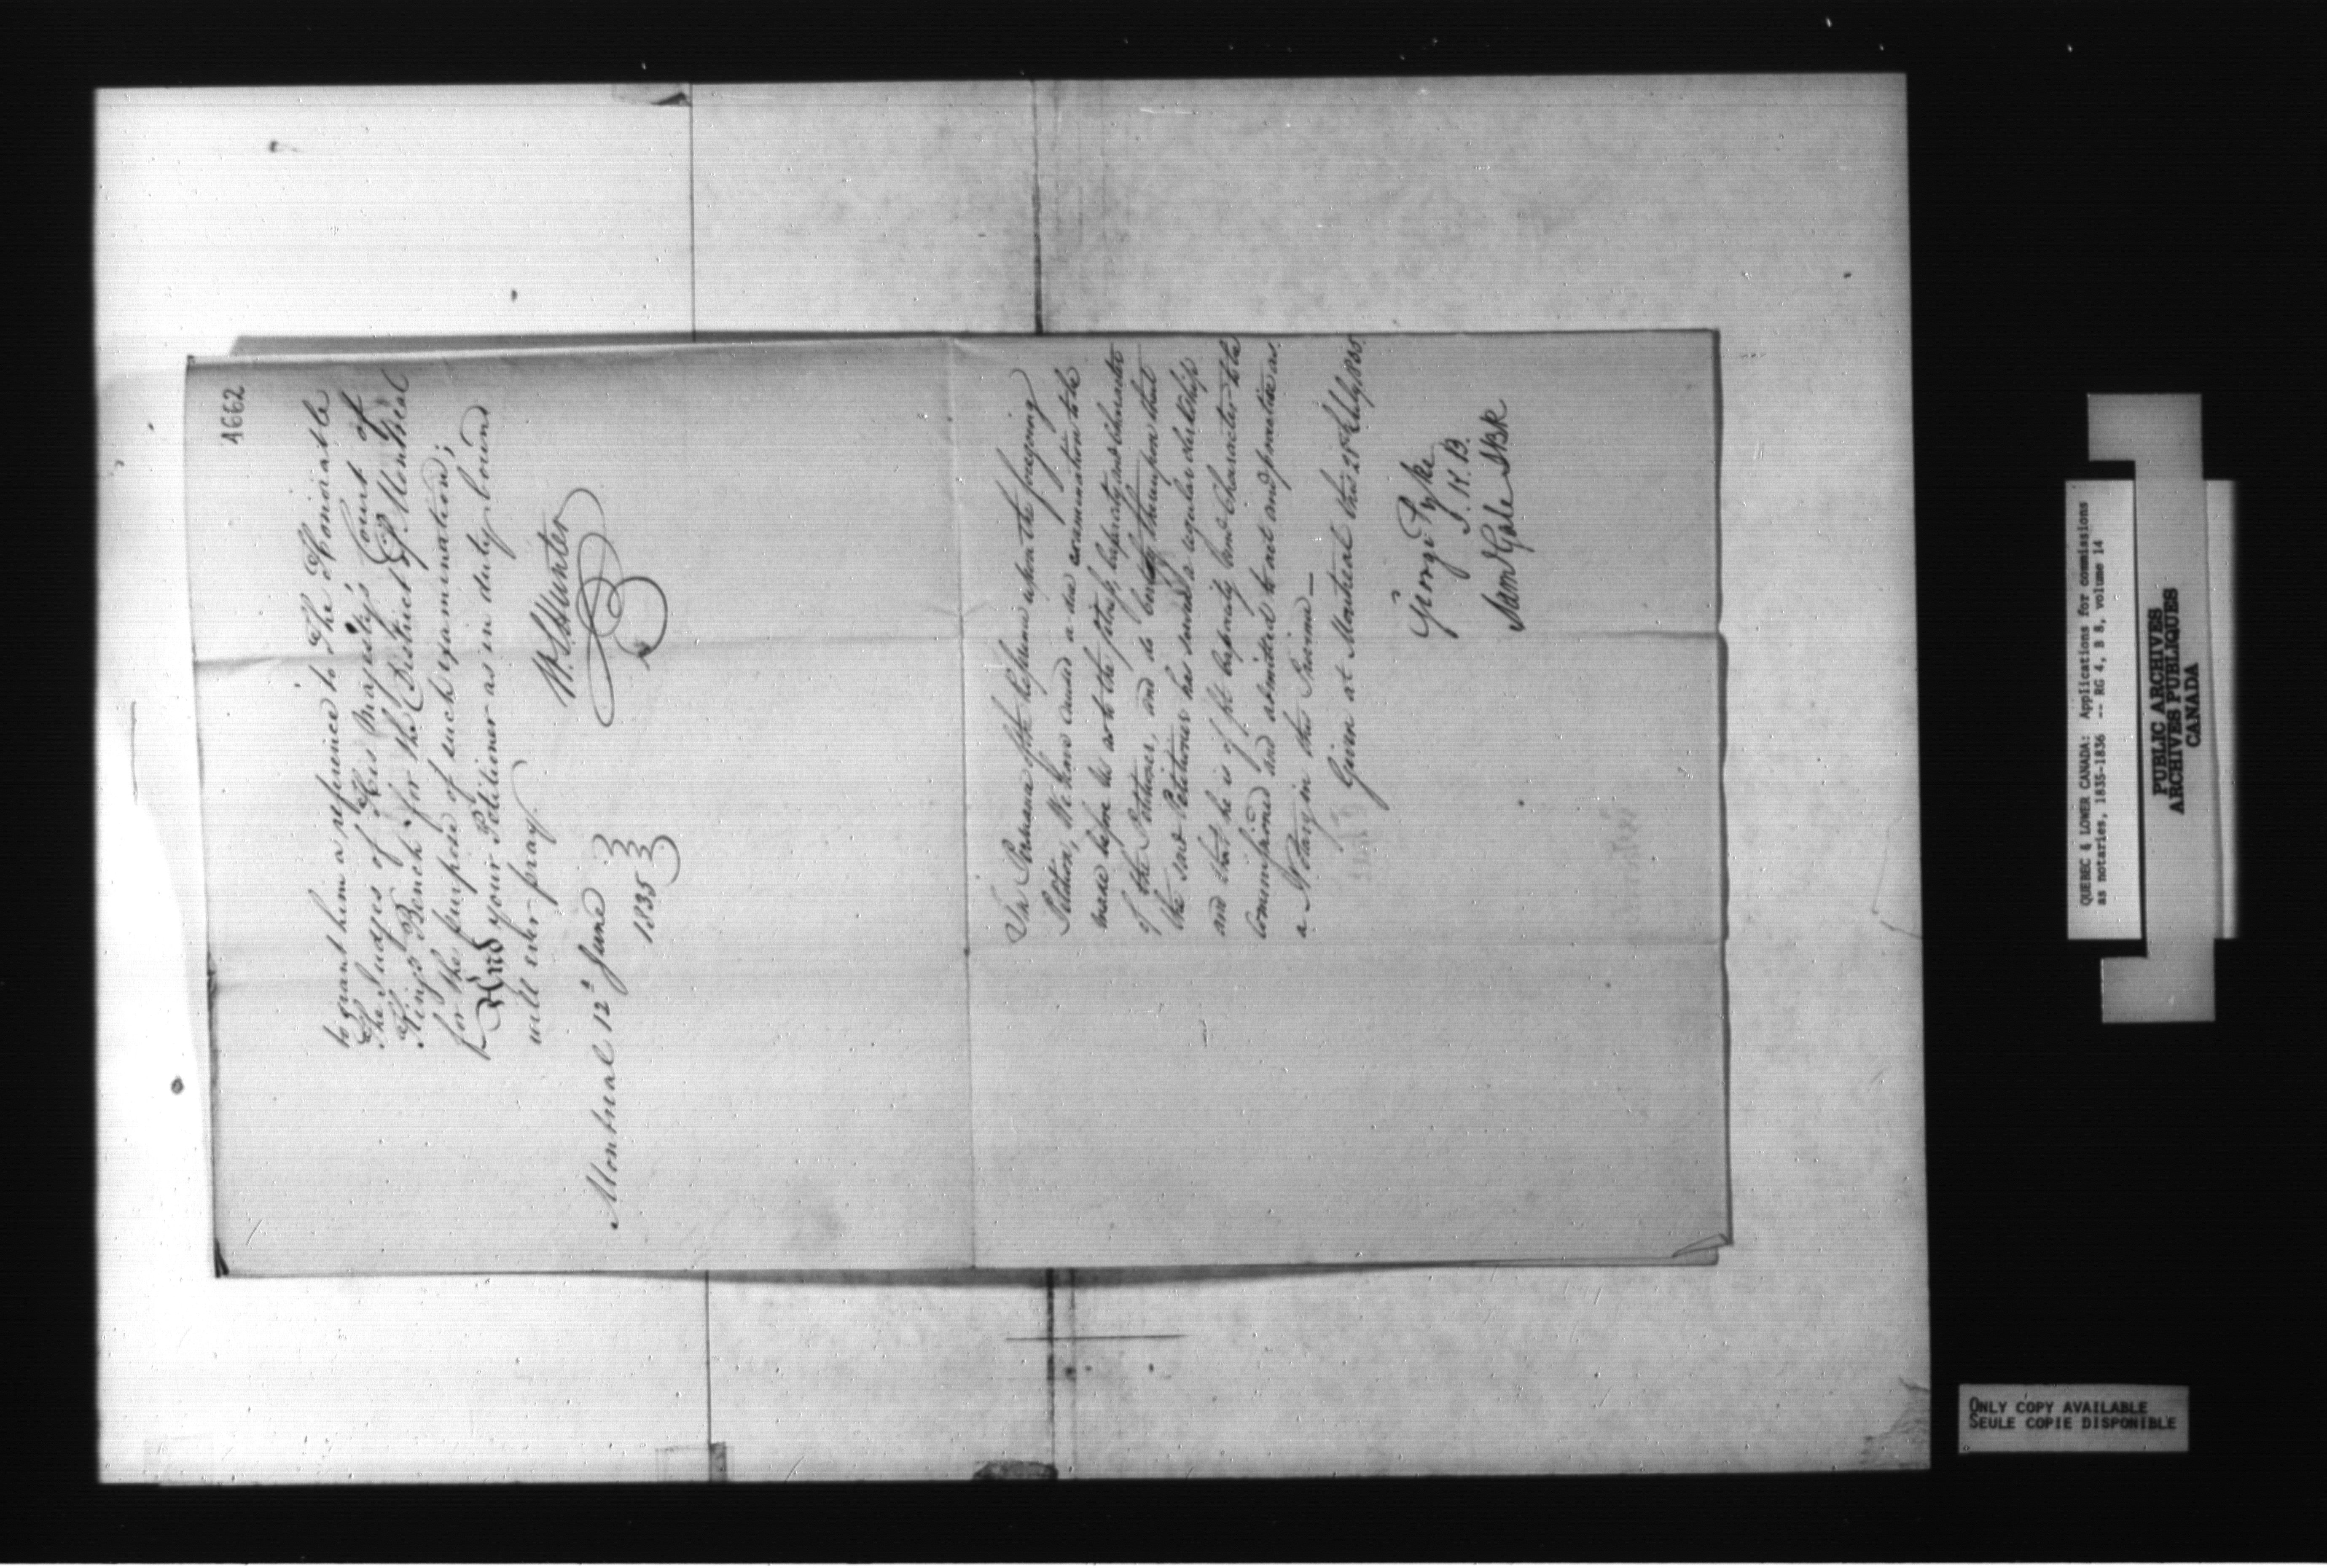 4662
to grant him a reference to The Honorable
The Judges of His Majesty's Court of
King's Bench for the District of Montreal
for the purpose of such examination;
And your Petitioner as in duty bound
will ever pray.
W. S. Hunter
Montreal 12th June
1835
In Pursuance of the Reference upon the foregoing
Petition, We have caused a due examination to be
made before us as to the fitness, capacity and character
of the Petitioner, and do certify thereupon that
the said Petitioner has served a regular clerkship
and that he is of fit capacity and character to be
commissioned and admitted to act and practise as
a Notary in this Province —
Given at Montreal this July 1835.
George Pyke
J. K. B.
Saml Gale JKBR
QUEBEC & LOWER CANADA: Applications for commissions
as notaries, 1835-1836 -- RG 4, B 8, volume 14
PUBLIC ARCHIVES
ARCHIVES PUBLIQUES
CANADA
ONLY COPY AVAILABLE
SEULE COPIE DISPONIBLE